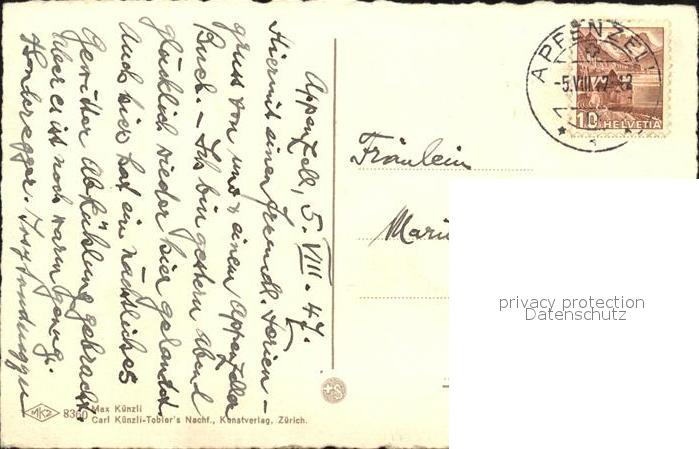 Appenzell, 5. VIII. 47.
Hiermit einen freundl. Ferien-
gruss von uns & einem Appenzeller
Buch. – Ich bin gestern Abend
glücklich wieder hier gelandet.
Auch hier hat ein nächtliches
Gewitter Abkühlung gebracht.
Aber es ist noch warm genug.
Honderegger.
Fräulein
APPENZELL
-5.VIII.47
10 HELVETIA
privacy protection
Datenschutz
MKZ 8360 Max Künzli
Carl Künzli-Tobler's Nachf., Kunstverlag, Zürich.